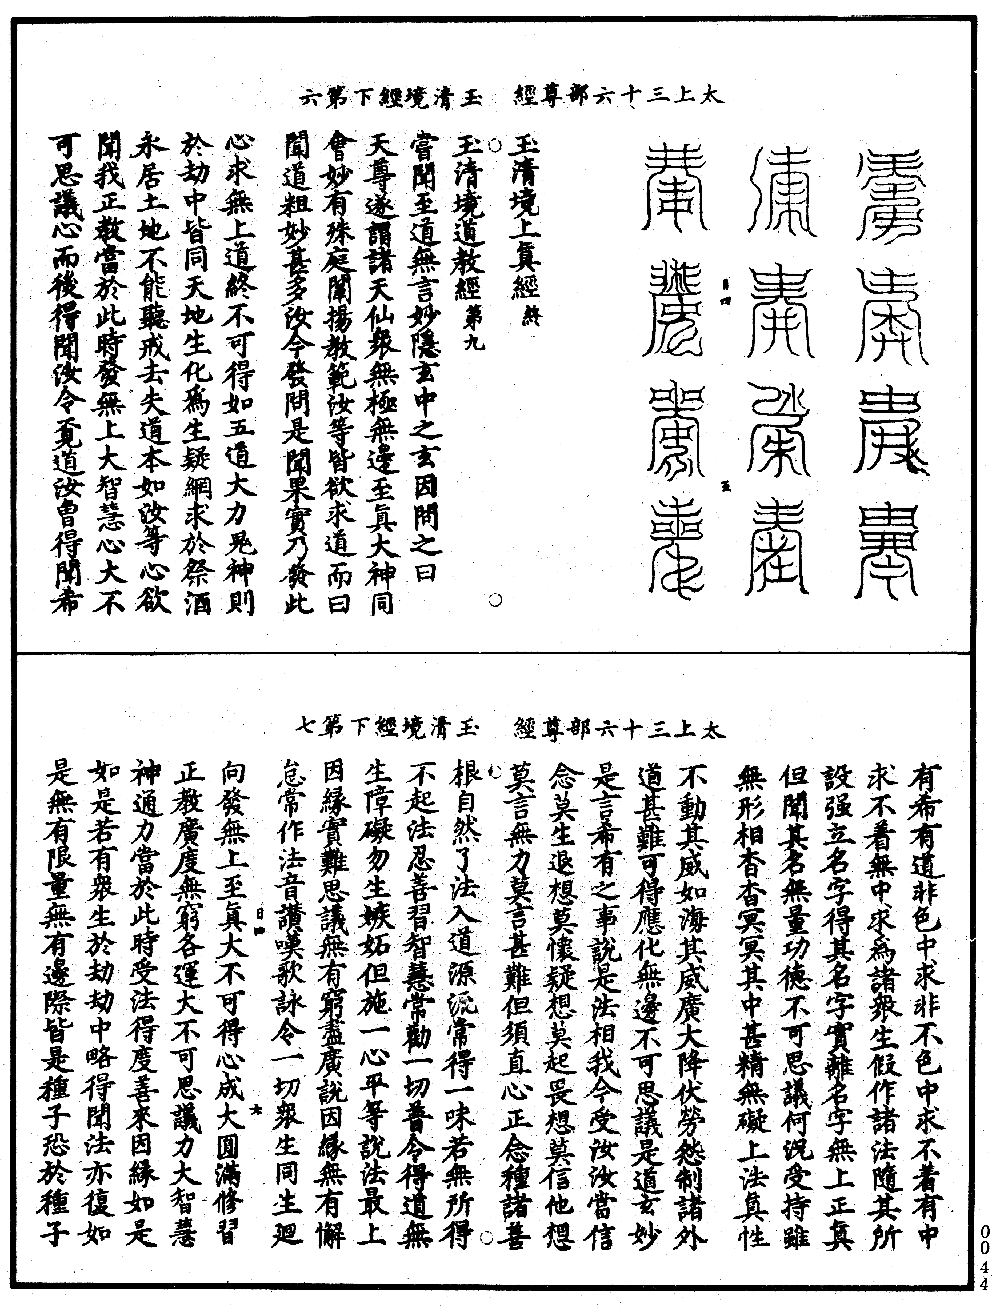 太上三十六部尊經　玉清境經下第六
玉清境上真經終
玉清境道教經第九
嘗聞至道無言妙隱玄中之玄因問之曰
天尊遂謂諸天仙衆無極無邊至真大神同
會妙有殊庭闡揚教範汝等皆欲求道而曰
聞道粗妙甚多汝今發問是聞果實乃發此
心求無上道終不可得如五道大力鬼神則
於劫中皆同天地生化爲生疑網求於祭酒
永居土地不能聽戒去失道本如汝等心欲
聞我正教當於此時發無上大智慧心大不
可思議心而後得聞汝今覓道汝曾得聞希
太上三十六部尊經　玉清境經下第七
有希有道非色中求非不色中求不着有中
求不着無中求爲諸衆生假作諸法隨其所
設强立名字得其名字實離名字無上正真
但聞其名無量功德不可思議何況受持雖
無形相杳杳冥冥其中甚精無礙上法真性
不動其威如海其威廣大降伏勞怨制諸外
道甚難可得應化無邊不可思議是道玄妙
是言希有之事說是法相我今受汝汝當信
念莫生退想莫懷疑想莫起畏想莫信他想
莫言無力莫言甚難但須直心正念種諸善
根自然了法入道源流常得一味若無所得
不起法忍善習智慧常勸一切普令得道無
生障礙勿生嫉妬但施一心平等說法最上
因緣實難思議無有窮盡廣說因緣無有懈
怠常作法音讚嘆歌詠令一切衆生同生迴
向發無上至真大不可得心成大圓滿修習
正教廣度無窮各運大不可思議力大智慧
神通力當於此時受法得度善來因緣如是
如是若有衆生於劫劫中略得聞法亦復如
是無有限量無有邊際皆是種子恐於種子
0044